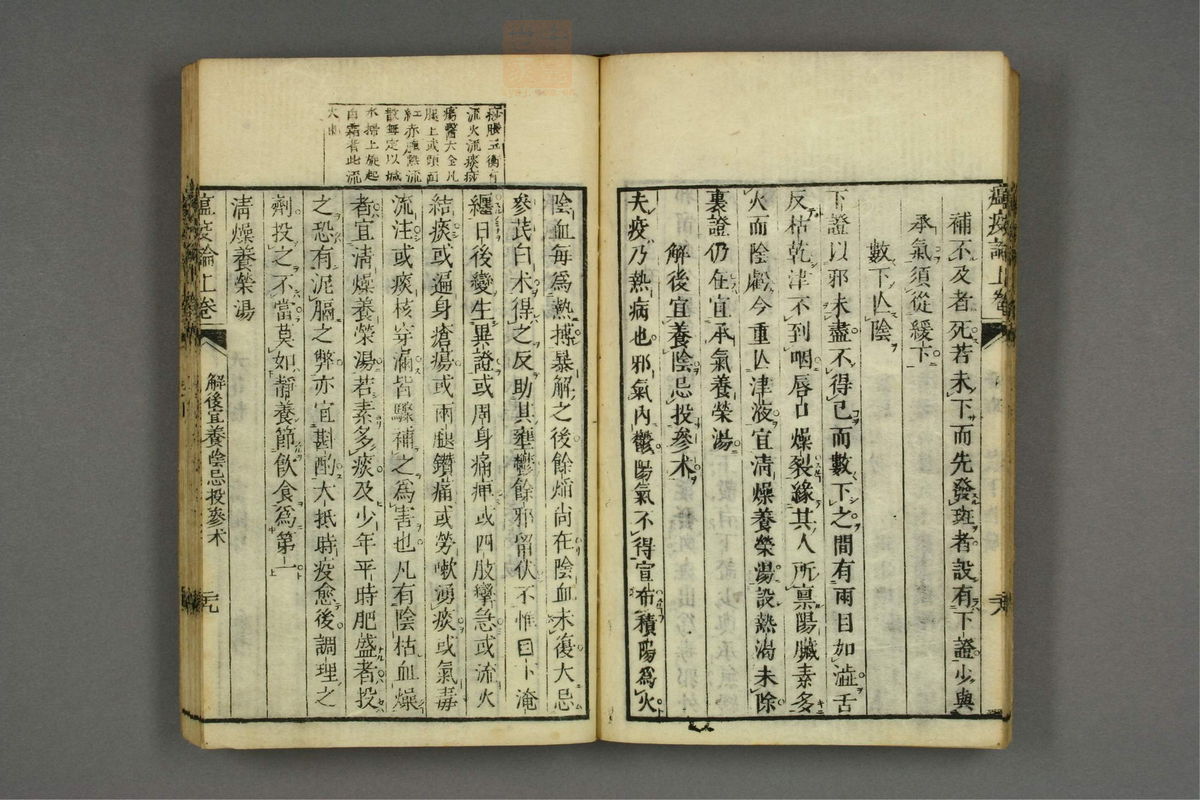 瘟疫論上卷
補不及者死若未下而先發斑者設有下證少與
承氣須從緩下
數下亡陰
下證以邪未盡不得已而數下之間有兩目如澁舌
反枯乾津不到咽唇口燥裂緣其人所稟陽臟素多
火而陰虧今重亡津液宜清燥養榮湯設熱渴未除
裏證仍在宜承氣養榮湯
解後宜養陰忌投參朮
夫疫乃熱病也邪氣内鬱陽氣不得宣布積陽爲火
陰血每爲熱搏暴解之後餘焰尚在陰血未復大忌
參芪白朮得之反助其壅鬱餘邪留伏不惟目下淹
纏日後變生異證或周身痛痺或四肢攣急或流火
結痰或遍身瘡瘍或兩腿鑽痛或勞嗽湧痰或氣毒
流注或痰核穿漏皆驟補之爲害也凡有陰枯血燥
者宜清燥養榮湯若素多痰及少年平時肥盛者投
之恐有泥膈之弊亦宜斟酌大抵時疫愈後調理之
劑投之不當莫如靜養節飲食爲第一
清燥養榮湯
瘟疫論上卷
解後宜養陰忌投參朮
流火流痰
瘍醫大全凡
腿上或頭面
紅赤腫熱流
散無定以碱
水掃上旋起
白霜者此流
火